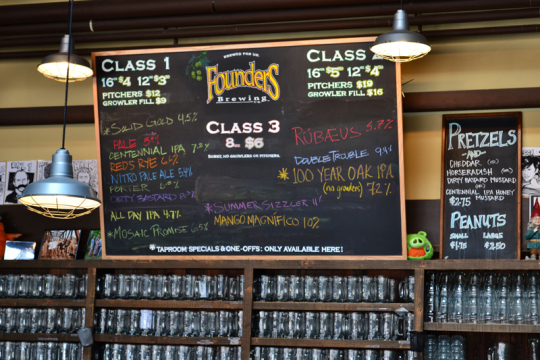 CLASS 1
16oz $4 12oz $3
PITCHERS $12
GROWLER FILL $9
*SOLID GOLD 4.5%
PALE
CENTENNIAL IPA 7.2%
REDS RYE 6%
NITRO PALE ALE 5.4%
PORTER
DIRTY BASTARD
ALL DAY IPA 4.7%
*MOSAIC PROMISE 5.5%
BREWED FOR US.
Founders
Brewing
CLASS 3
8oz $6
SORRY, NO GROWLERS OR PITCHERS.
*SUMMER SIZZLER
MANGO MAGNIFICO 10%
CLASS 2
16oz $5 12oz $4
PITCHERS $19
GROWLER FILL $16
RÜBÆUS 5.7%
DOUBLE TROUBLE 9.4%
*100 YEAR OAK IPA
(no growlers) 7.2%
*TAPROOM SPECIALS & ONE-OFFS: ONLY AVAILABLE HERE!
PRETZELS
-AND-
CHEDDAR (OR)
HORSERADISH (OR)
DIRTY BASTARD MUSTARD
(OR)
CENTENNIAL IPA HONEY
MUSTARD
$2.75
PEANUTS
SMALL LARGE
$1.75 $2.50